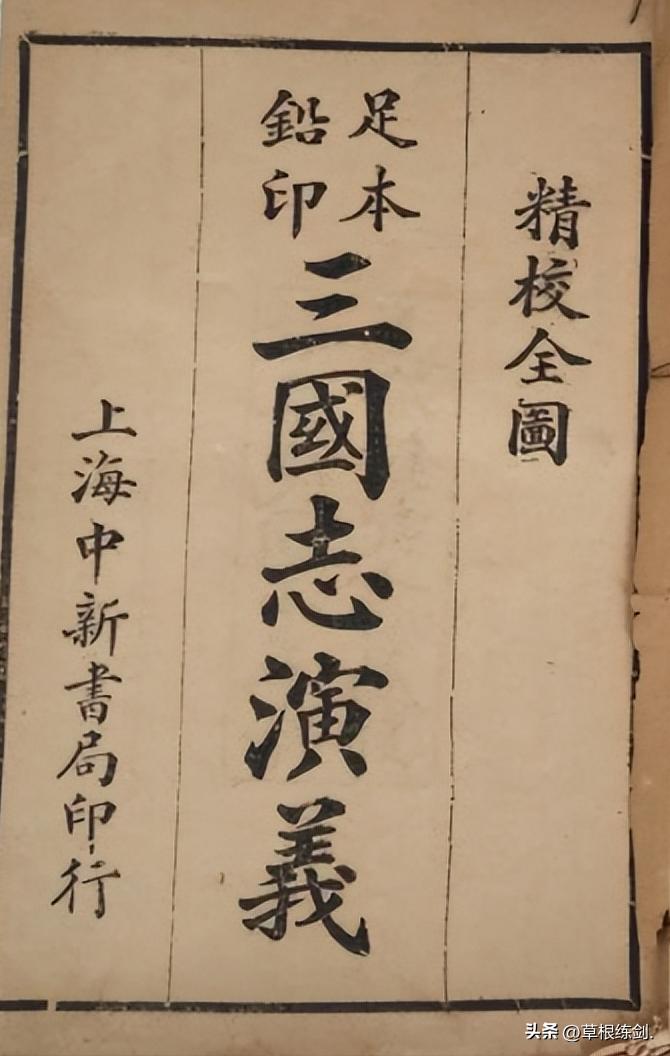 精校全圖
足本
鉛印
三國志演義
上海中新書局印行
头条 @草根练剑.